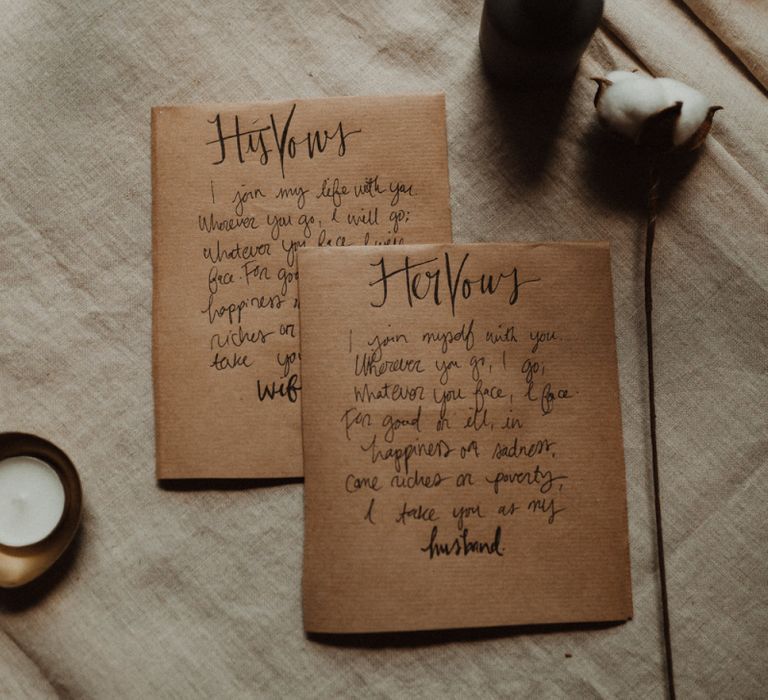 His Vows
I join my life with you.
Wherever you go, I will go;
whatever you face I will
face. For good
happiness
riches or
take you
wif
Her Vows
I join myself with you.
Wherever you go, I go;
whatever you face, I face.
For good or ill, in
happiness or sadness,
come riches or poverty,
I take you as my
husband.